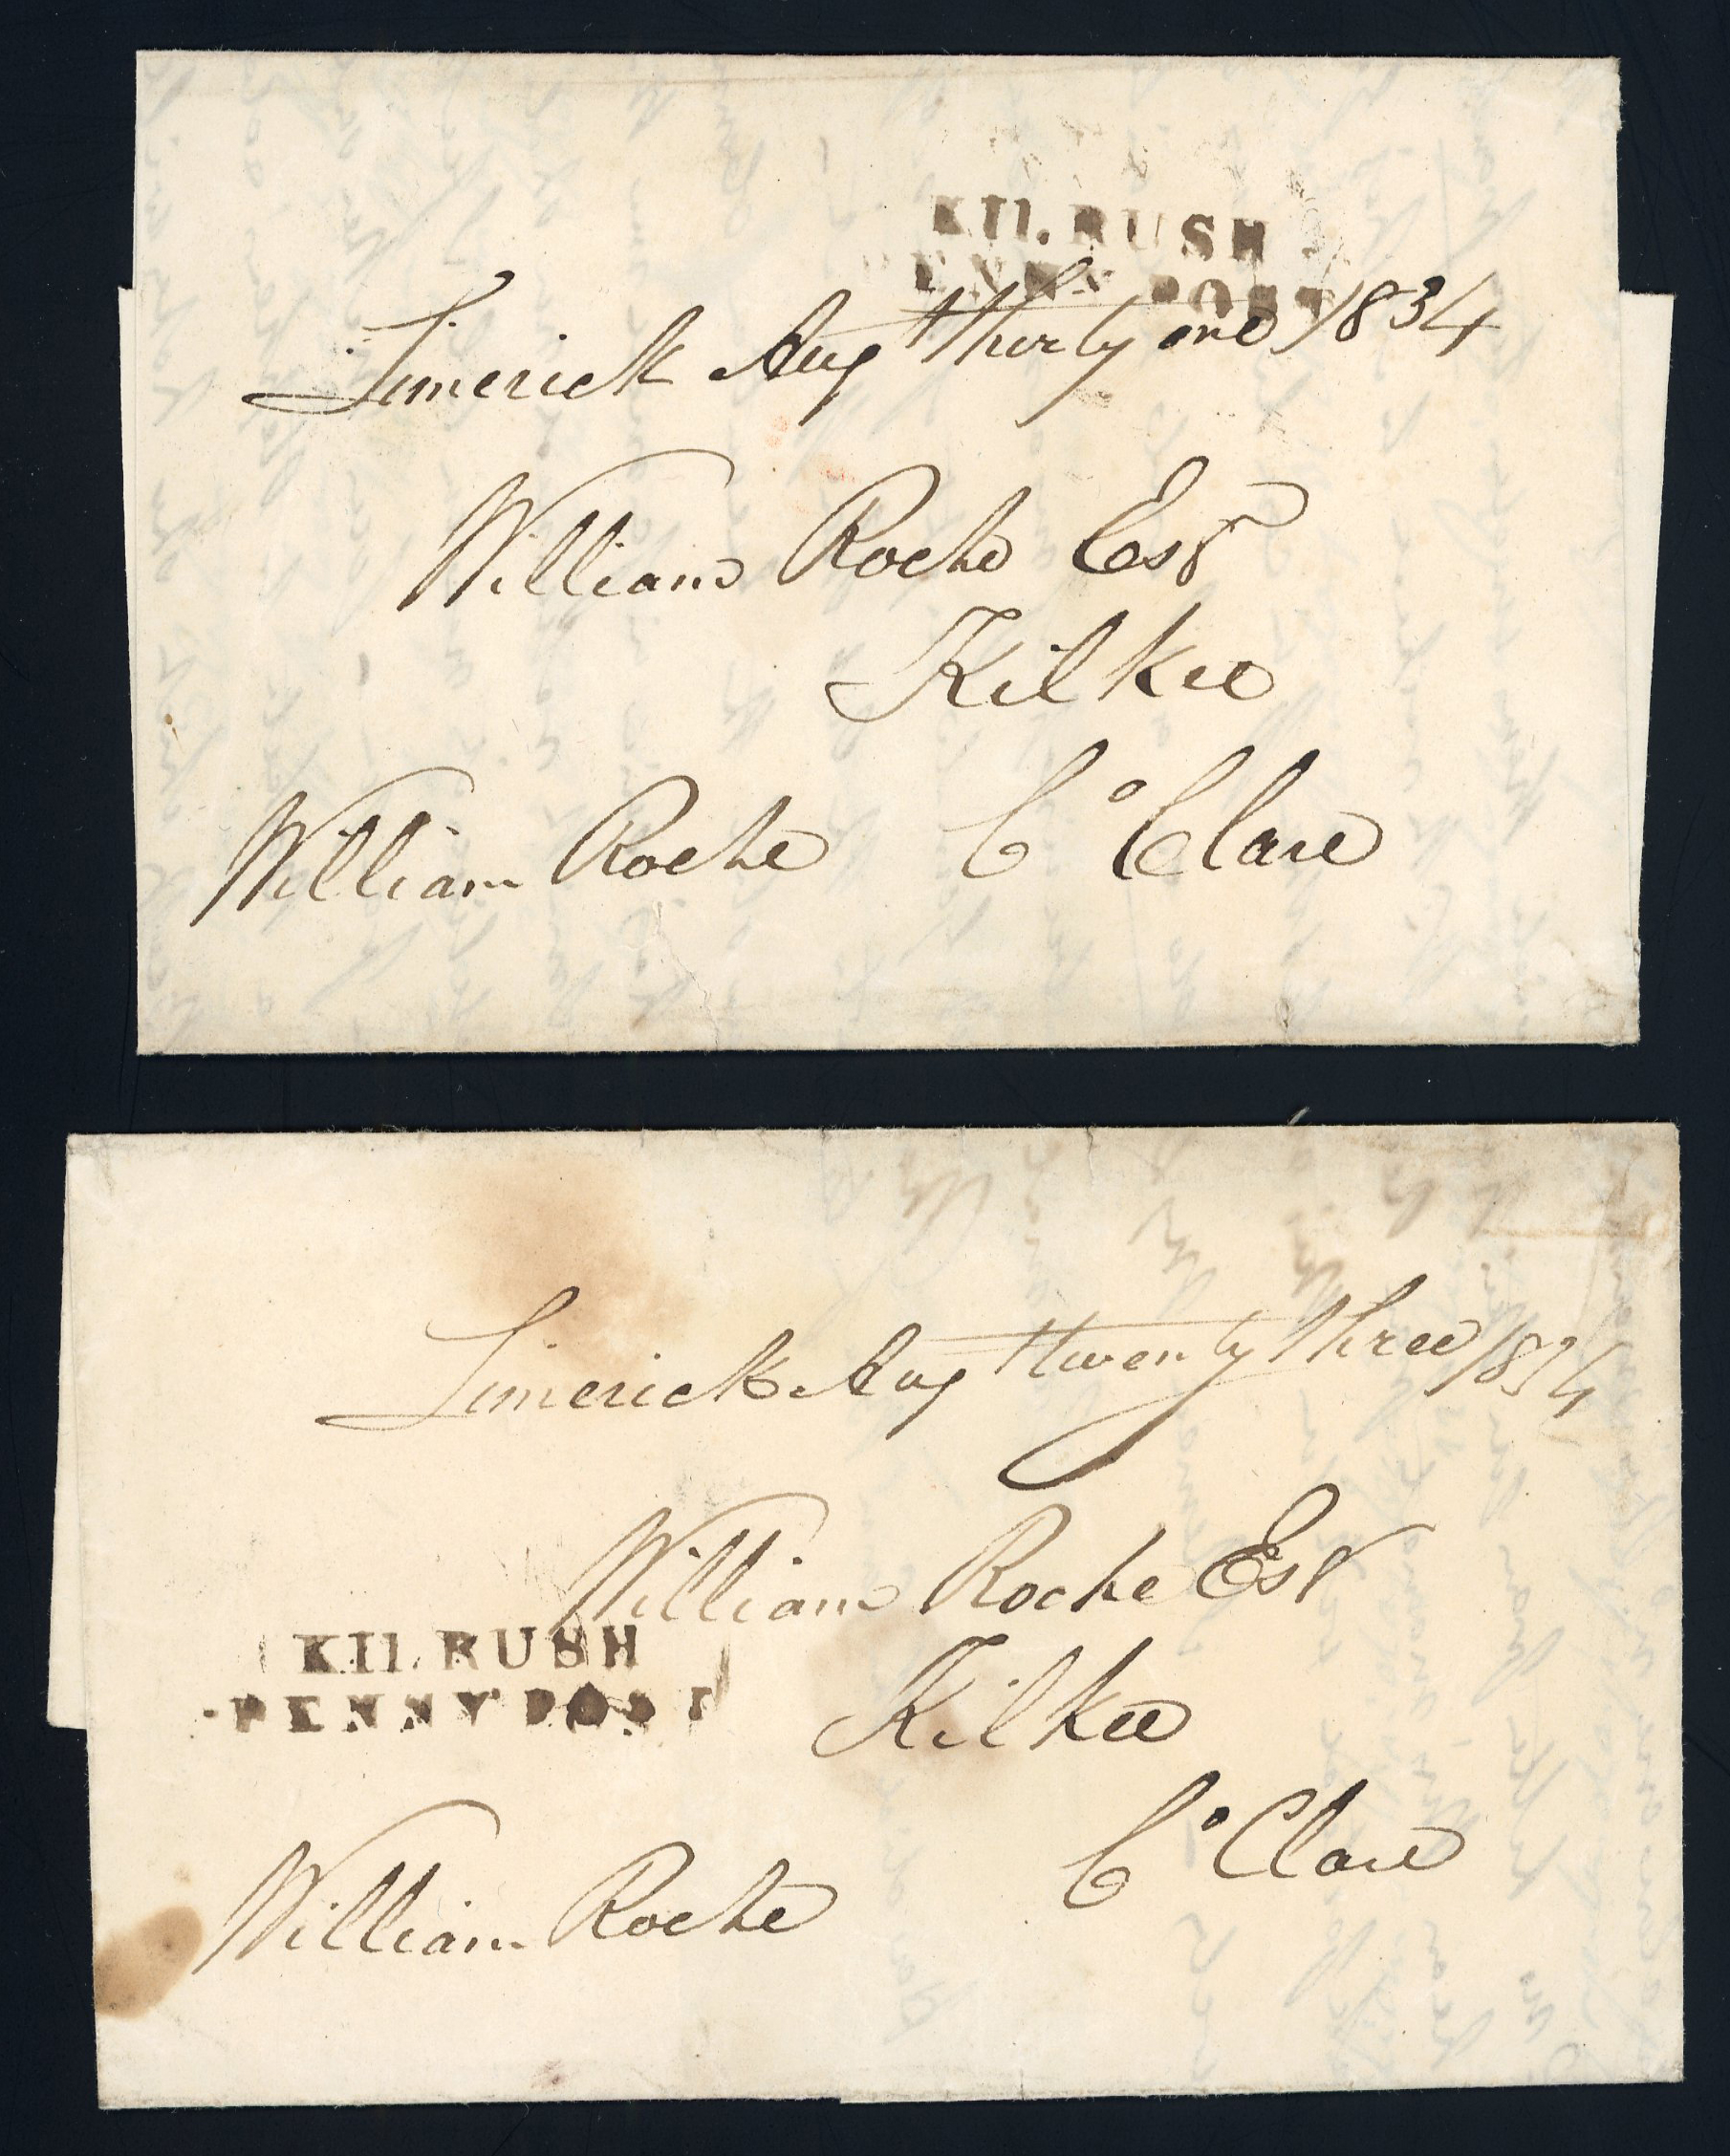 KILRUSH
PENNY POST
Limerick Aug thirty one 1834
William Roche Esqr
Kilkee
William Roche Co Clare
Limerick Aug twenty three 1834
William Roche Esqr
KILRUSH
PENNY POST
Kilkee
Co Clare
William Roche